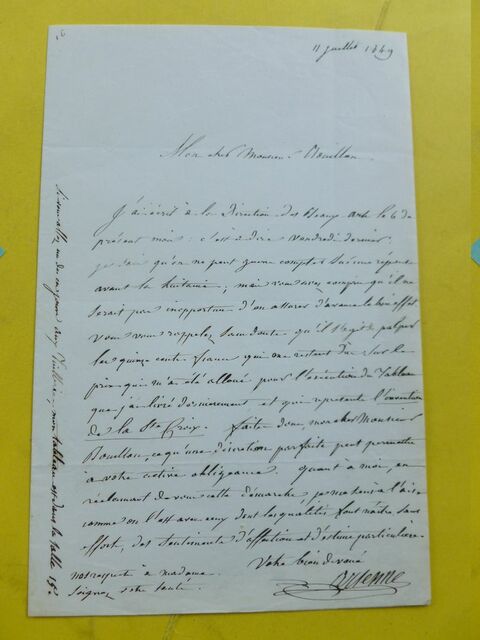 11 juillet 1849
Mon cher Monsieur Bouillon
J'ai écrit à la Direction des Beaux arts le 6 du
présent mois : c'est à dire vendredi dernier.
je sais qu'on ne peut guère compter sur une réponse
avant la huitaine, mais vous avez compris qu'il ne
serait pas inopportun d'en assurer d'avance le bon effet.
Vous vous rappelez sans doute qu'il s'agit de
les quinze cents francs qui me restent dus sur le
prix qui m'a été alloué pour l'exécution du Tableau
que j'ai livré dernièrement et qui représente l'invention
de la Ste Croix. faite donc, mon cher Monsieur
Bouillon, ce qu'une discrétion parfaite peut permettre
à votre active obligeance. quant à moi, en
réclamant de vous cette démarche, je me sens à l'aise
comme on l'est avec ceux dont les qualités font naître sans
effort, des sentiments d'affection et d'estime particulière.
Votre bien dévoué
mes respects à madame.
Soignez votre santé.
Si vous allez un de ces jours aux Tuileries, mon tableau est dans la salle